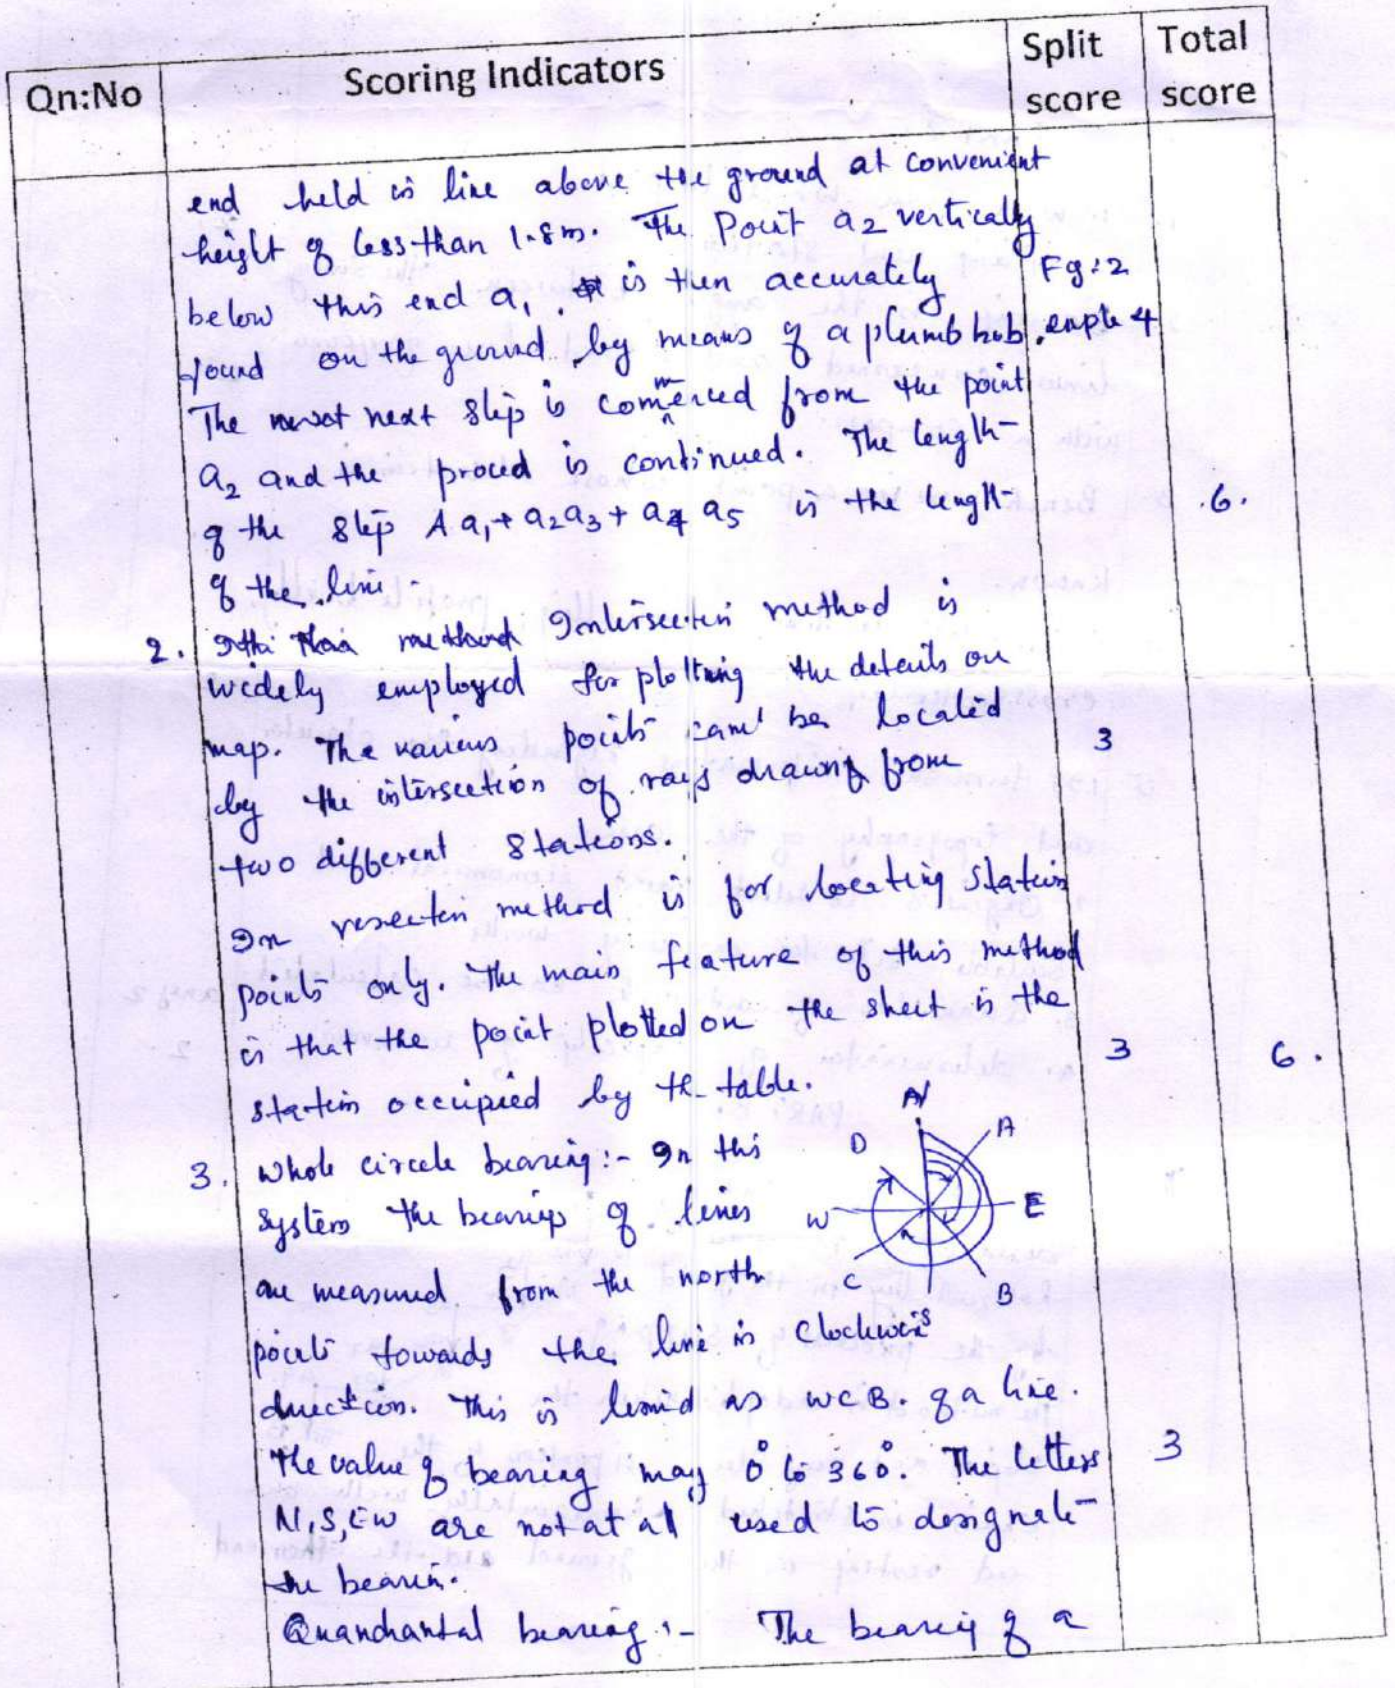 Qn:No Scoring Indicators Split score Total score
end held in line above the ground at convenient
height of less than 1.8m. The Point a2 vertically
below this end a1 is then accurately Fg:2
found on the ground by means of a plumb bob. 4
The next step is commenced from the point
a2 and the proced is continued. The length
of the step A a1 + a2a3 + a4 a5 is the length 6.
of the line.
2. Intersection method is
widely employed for plotting the details on
map. The various points can be located 3
by the intersection of rays drawing from
two different stations.
In resection method is for locating station
points only. The main feature of this method
is that the point plotted on the sheet is the 3 6.
station occupied by the table.
N
D A
W E
C B
3. Whole circle bearing:- In this
system the bearings of lines
are measured from the north
points towards the line in clockwise
direction. This is termed as WCB. of a line.
The value of bearing may 0° to 360°. The letters 3
N,S,EW are not at all used to designate
the bearin.
Quandrantal bearing:- The bearing of a